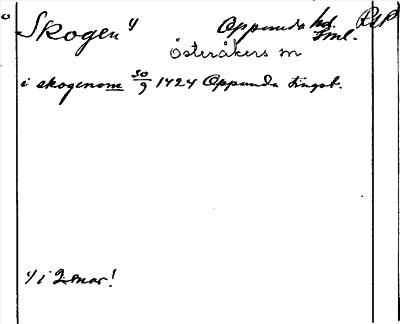 Skogen 4) Oppunda hd. Söml. RAP
Österåkers sn
i skogenom 30/9 1424 Oppunda tingst.
4) i 2 mar!